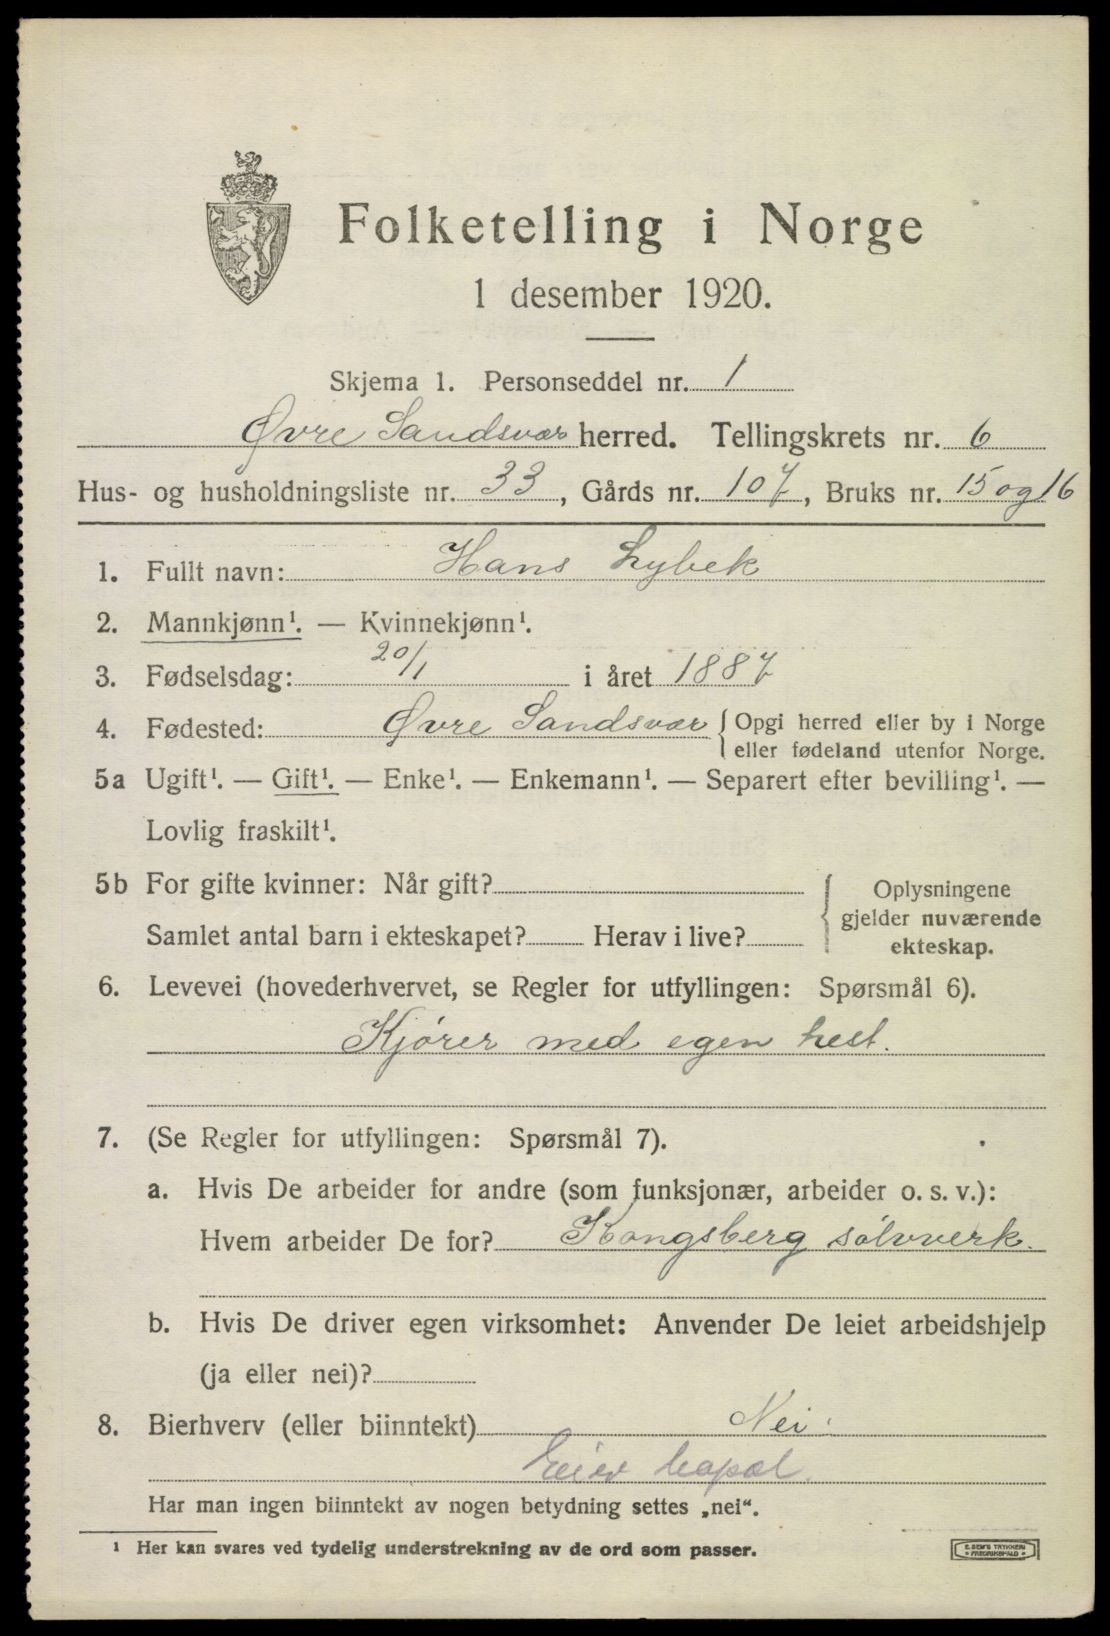 Folketelling i Norge
1 desember 1920.
Skjema 1. Personseddel nr. 1
Øvre Sandsvær herred. Tellingskrets nr. 6
Hus- og husholdningsliste nr. 33, Gårds nr. 107, Bruks nr. 15 og 16
1. Fullt navn: Hans Lybek
2. Mannkjønn¹. — Kvinnekjønn¹.
3. Fødselsdag: 20/1 i året 1887
4. Fødested: Øvre Sandsvær { Opgi herred eller by i Norge
eller fødeland utenfor Norge.
5a Ugift¹. — Gift¹. — Enke¹. — Enkemann¹. — Separert efter bevilling¹. —
Lovlig fraskilt¹.
5b For gifte kvinner: Når gift?
Samlet antal barn i ekteskapet? Herav i live?
{ Oplysningene
gjelder nuværende
ekteskap.
6. Levevei (hovederhvervet, se Regler for utfyllingen: Spørsmål 6).
Kjører med egen hest.
7. (Se Regler for utfyllingen: Spørsmål 7).
a. Hvis De arbeider for andre (som funksjonær, arbeider o. s. v.):
Hvem arbeider De for? Kongsberg sølvverk.
b. Hvis De driver egen virksomhet: Anvender De leiet arbeidshjelp
(ja eller nei)?
8. Bierhverv (eller biinntekt) Nei.
Eier
Har man ingen biinntekt av nogen betydning settes „nei“.
¹ Her kan svares ved tydelig understrekning av de ord som passer.